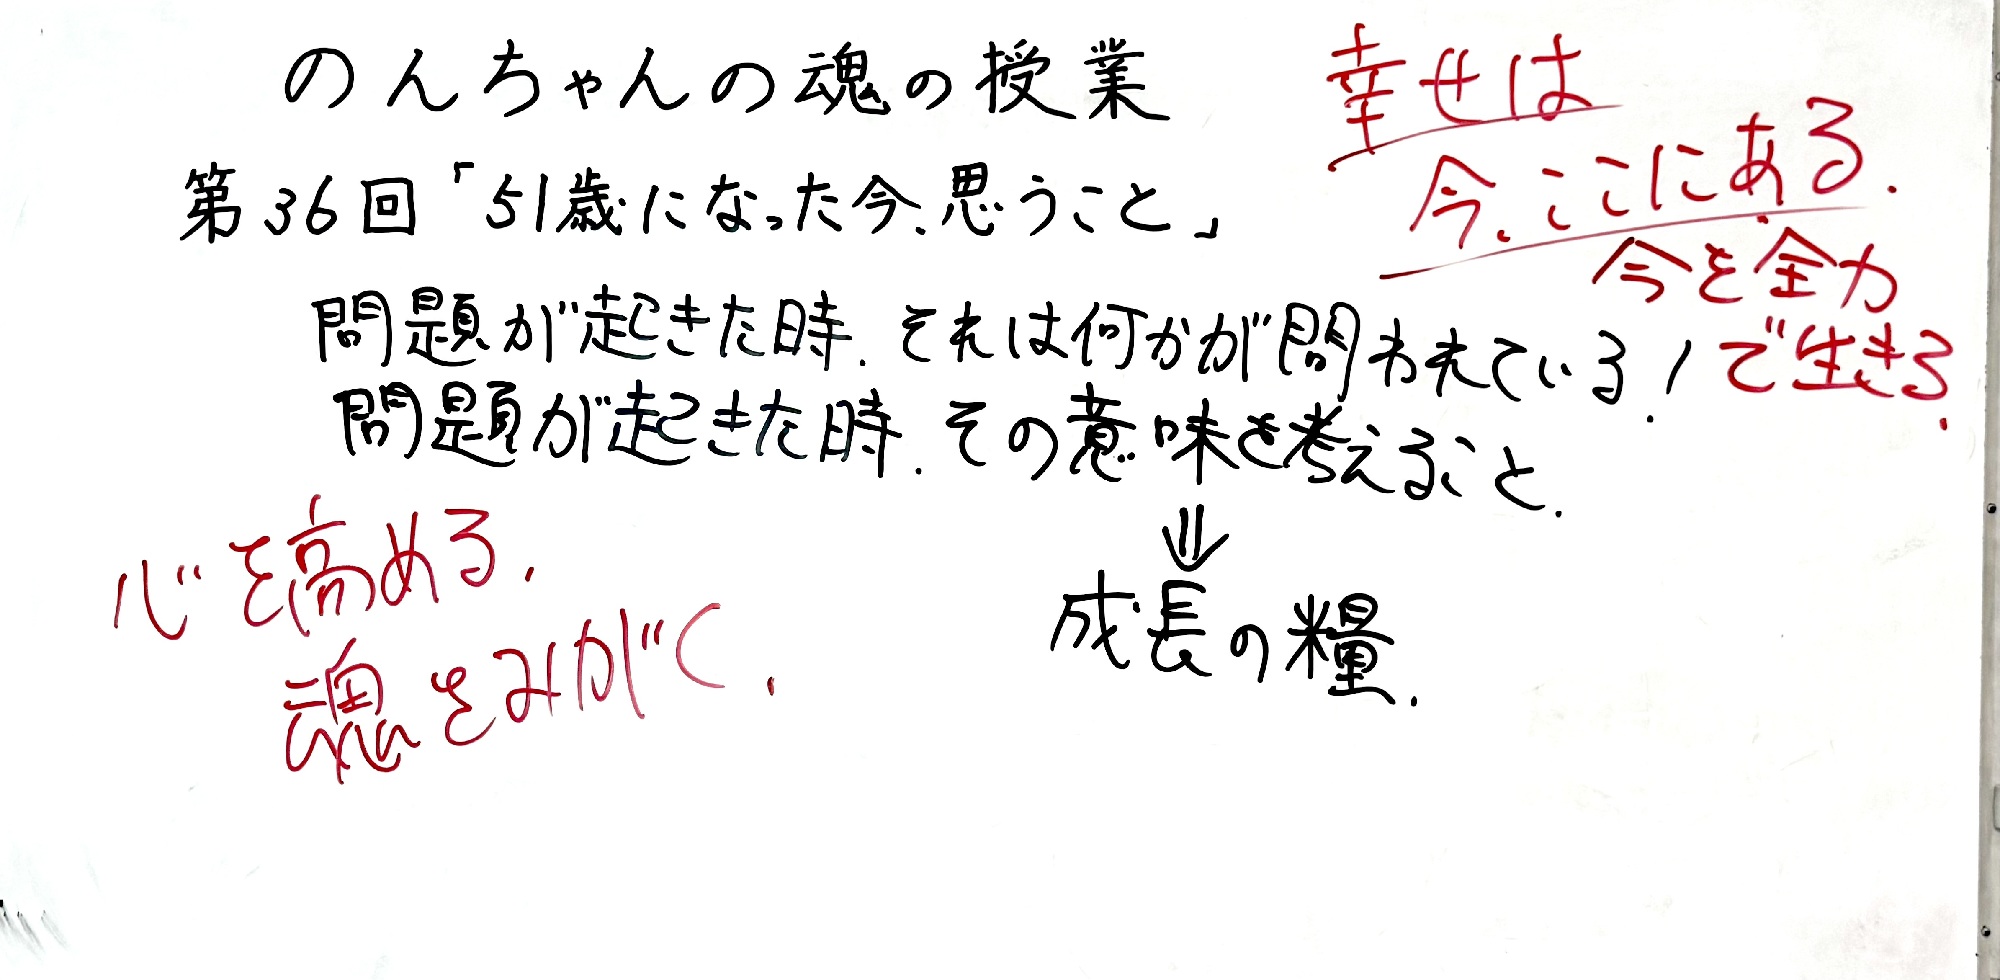 のんちゃんの魂の授業
第36回「51歳になった今、思うこと」
幸せは
今、ここにある.
今を全力
で生きる.
問題が起きた時、それは何かが問われている!
問題が起きた時、その意味を考えること.
⇓
成長の糧.
心を高める.
魂をみがく.